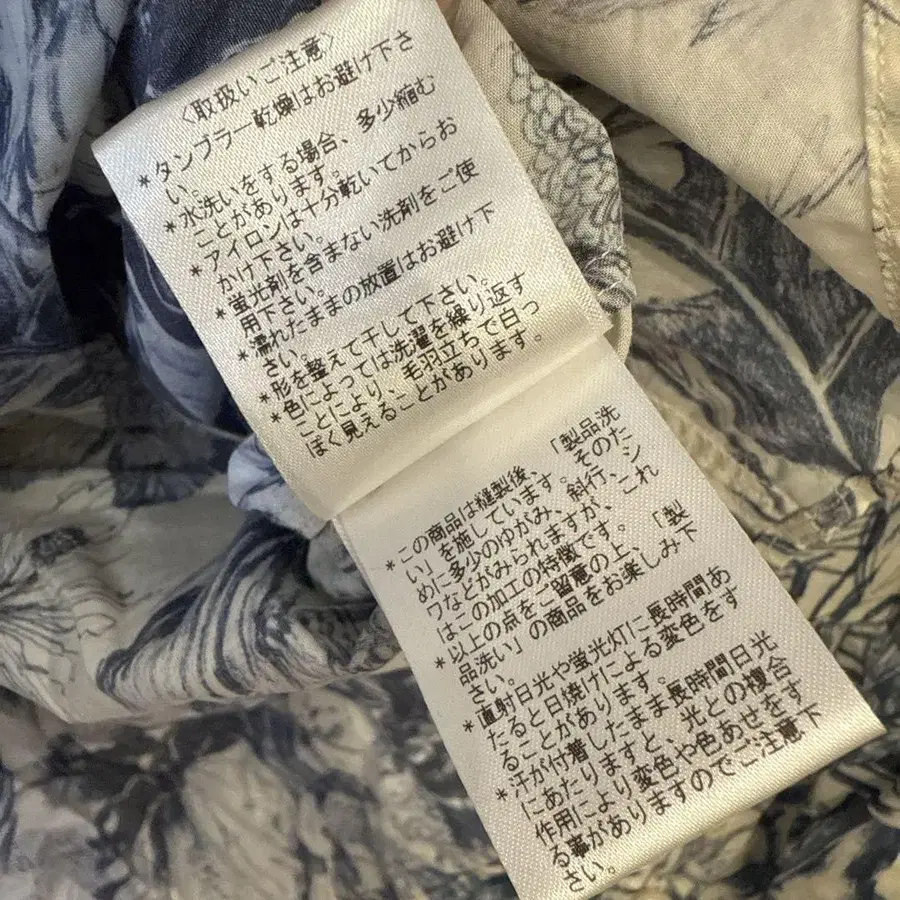 〈取扱いご注意〉
*タンブラー乾燥はお避け下さ
い。
*水洗いをする場合、多少縮む
ことがあります。
*アイロンは十分乾いてからお
かけ下さい。
*蛍光剤を含まない洗剤をご使
用下さい。
*濡れたままの放置はお避け下
さい。
*形を整えて干して下さい。
*色によっては洗濯を繰り返す
ことにより、毛羽立ちで白っ
ぽく見えることがあります。
*この商品は縫製後、「製品洗
い」を施しています。そのた
めに多少のゆがみ、斜行、シ
ワなどがみられますが、これ
はこの加工の特徴です。
*以上の点をご留意の上、「製
品洗い」の商品をお楽しみ下
さい。
*直射日光や蛍光灯に長時間あ
たると日焼けによる変色をす
ることがあります。
*汗が付着したまま長時間日光
にあたりますと、光との複合
作用により変色や色あせをす
る事がありますのでご注意下
さい。